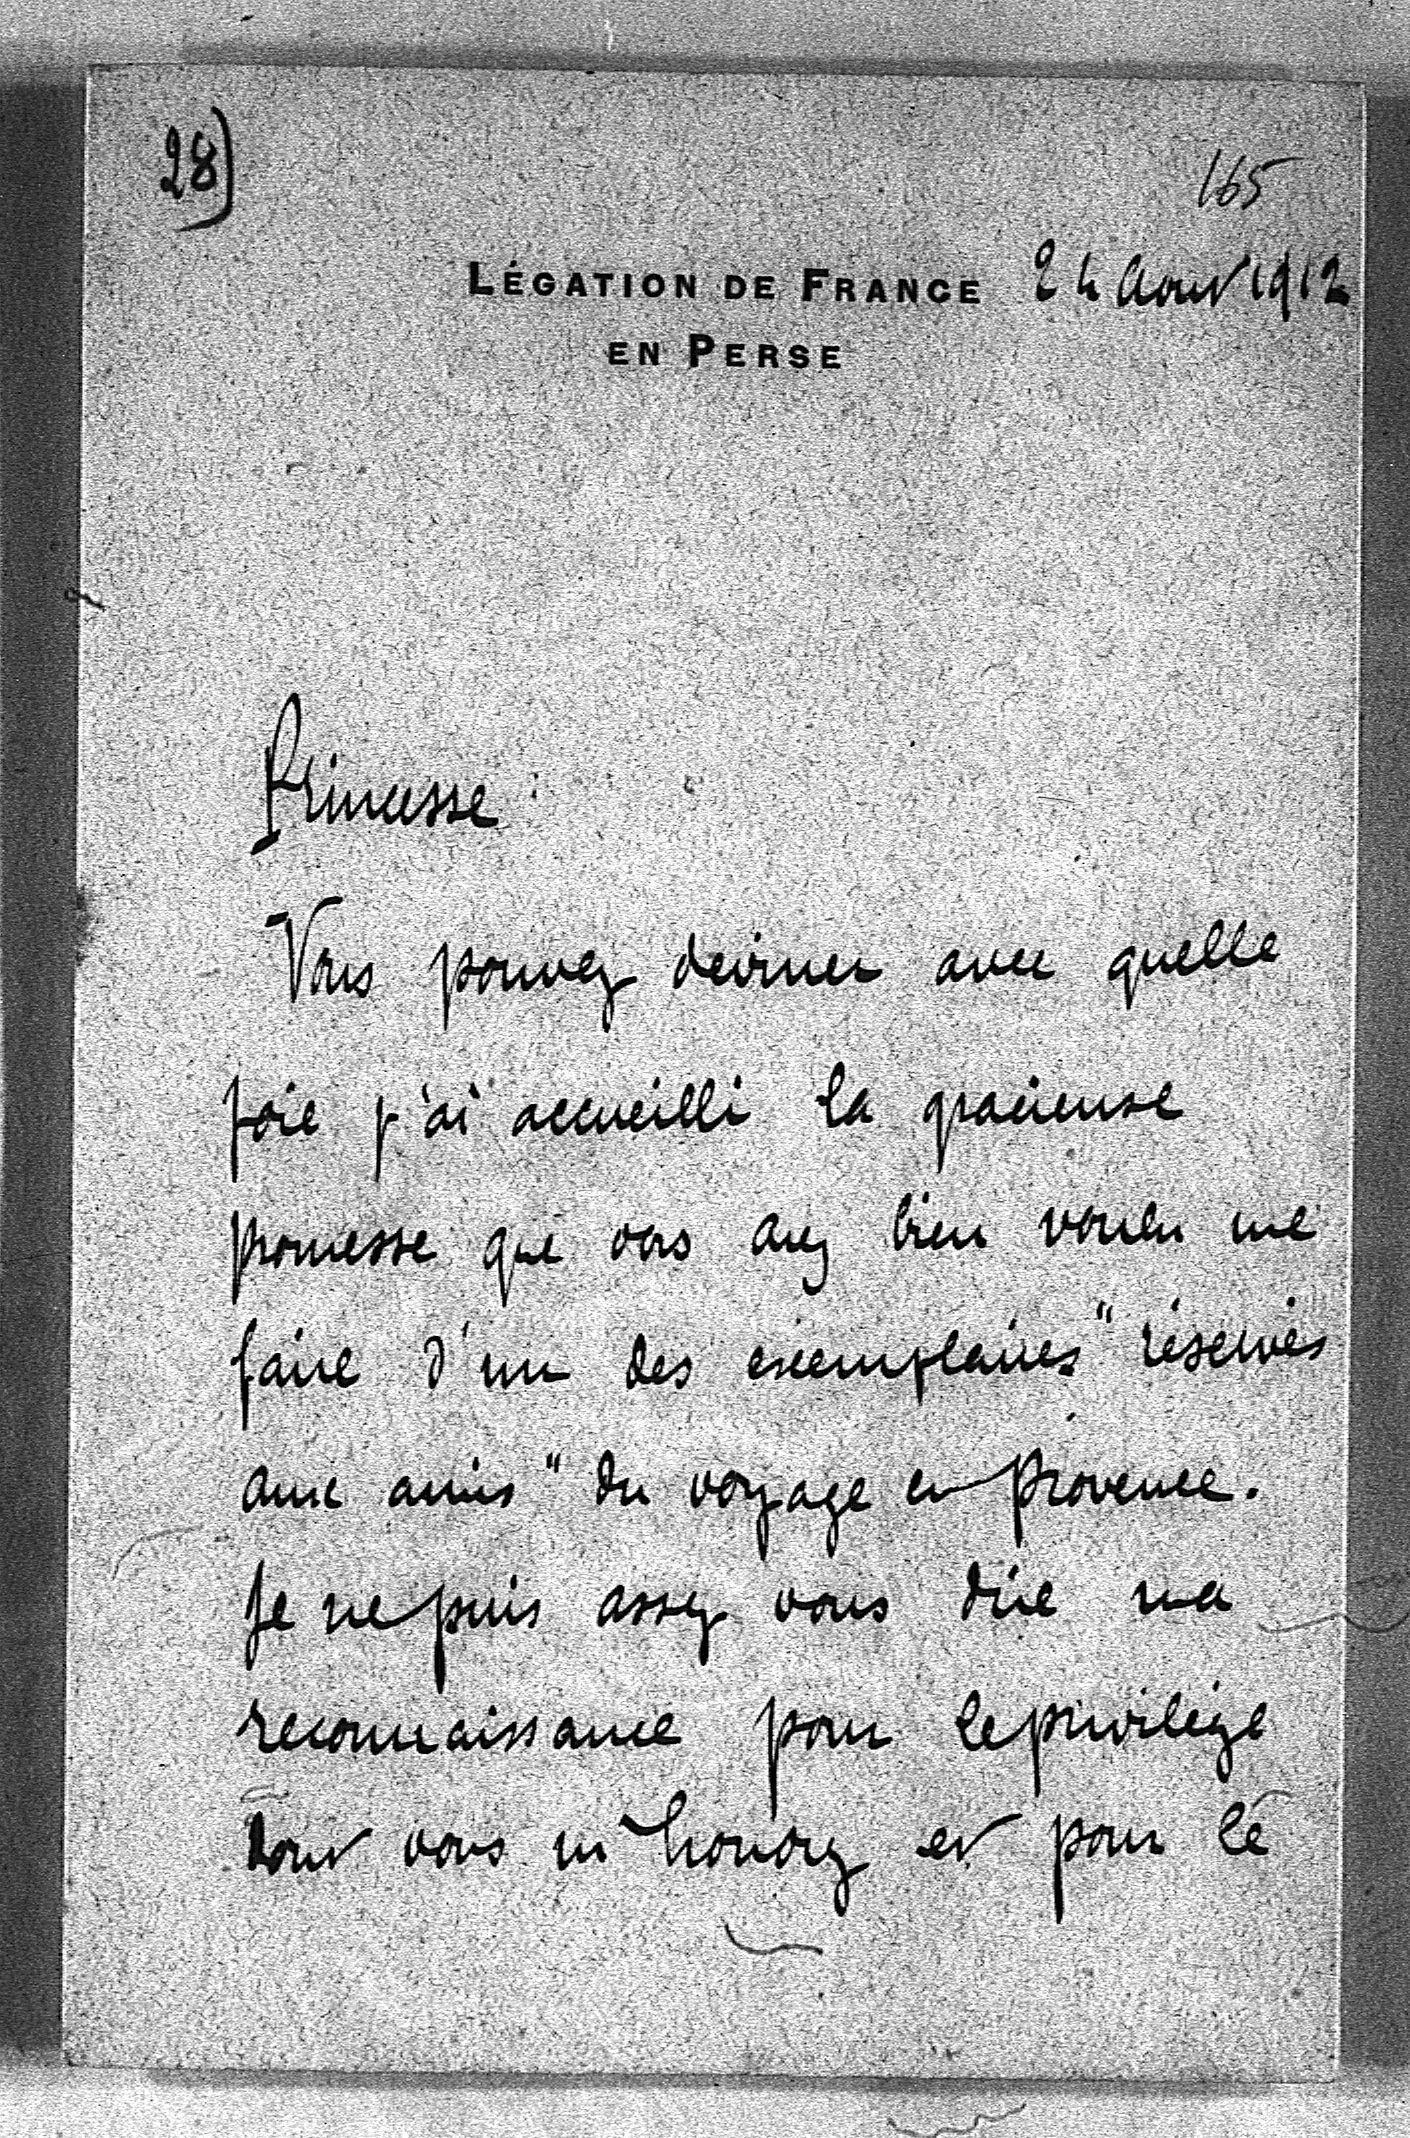 28)
165
LÉGATION DE FRANCE 24 Aout 1912
EN PERSE
Princesse :
Vous pouvez deviner avec quelle
joie j'ai accueilli la gracieuse
promesse que vous avez bien voulu me
faire d'un des exemplaires "réservés
aux amis" du voyage en Provence.
Je ne puis assez vous dire ma
reconnaissance pour le privilège
dont vous m'honorez et pour le